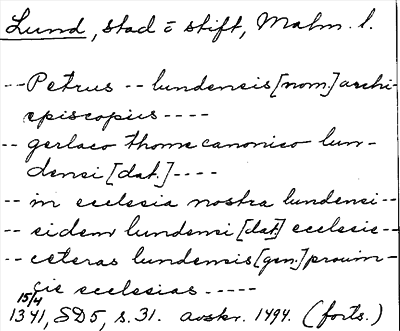 Lund, stad o stift, Malm. l.
-- Petrus -- lundensis [nom.] archi-
episcopus ----
-- gerlaco thome canonico lun-
densi [dat.] ----
-- in ecclesia nostra lundensi --
-- eidem lundensi [dat.] ecclesie --
-- ceteras lundensis [gen.] prouin-
cie ecclesias -----
15/4
1341, SD5, s. 31. avskr. 1494. (forts.)